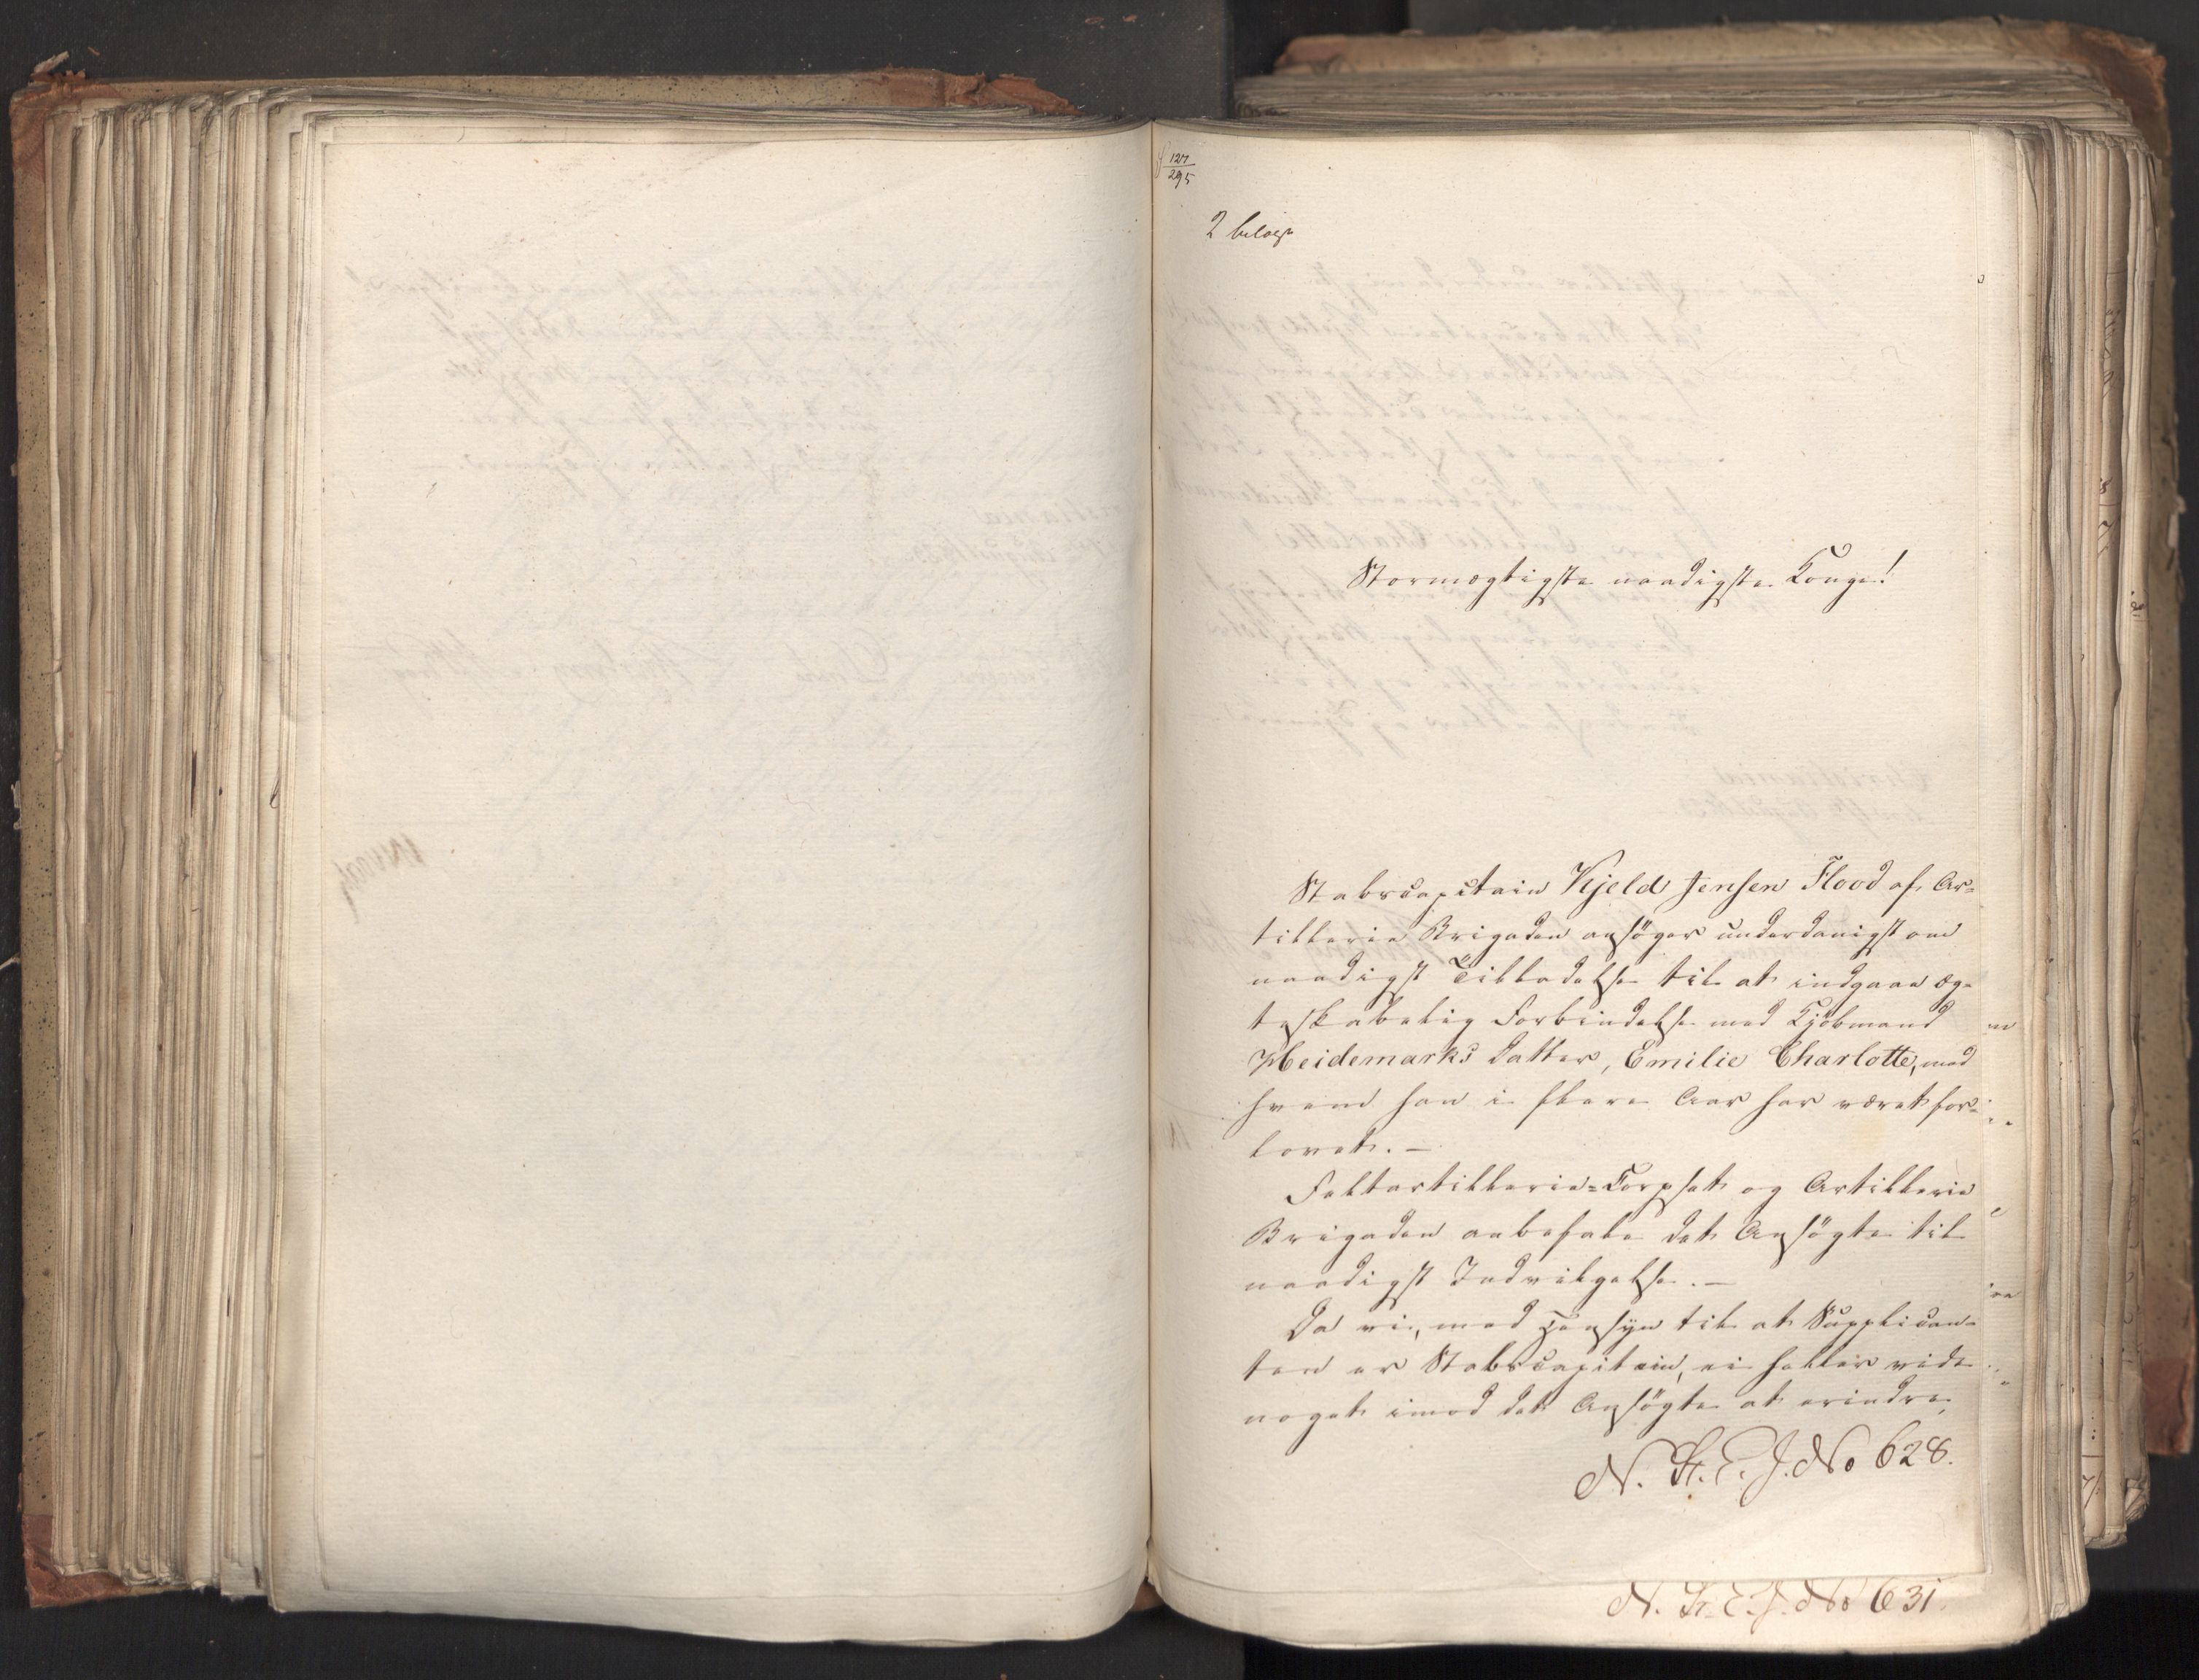 127
295
2 bilage
Stormægtigste naadigste Konge!
Stabscapitain Kjeld Jensen Flood af Ar=
tillerie Brigaden ansöger underdanigst om
naadigst Tilladelse til at indgaae æg=
teskabelig Forbindelse med Kjöbmand
Heidemarks Datter, Emilie Charlotte, med
hvem han i flere Aar har været for=
lovet. —
Feltartillerie=Corpset og Artillerie
Brigaden anbefale det Ansögte til
naadigst Indvilgelse. —
Da vi, med Hensyn til at Supplican=
ten er Stabscapitain, ei heller vide
noget imod det Ansögte at erindre,
N. St. E. J. No 628.
N. St. E. J. No 631.